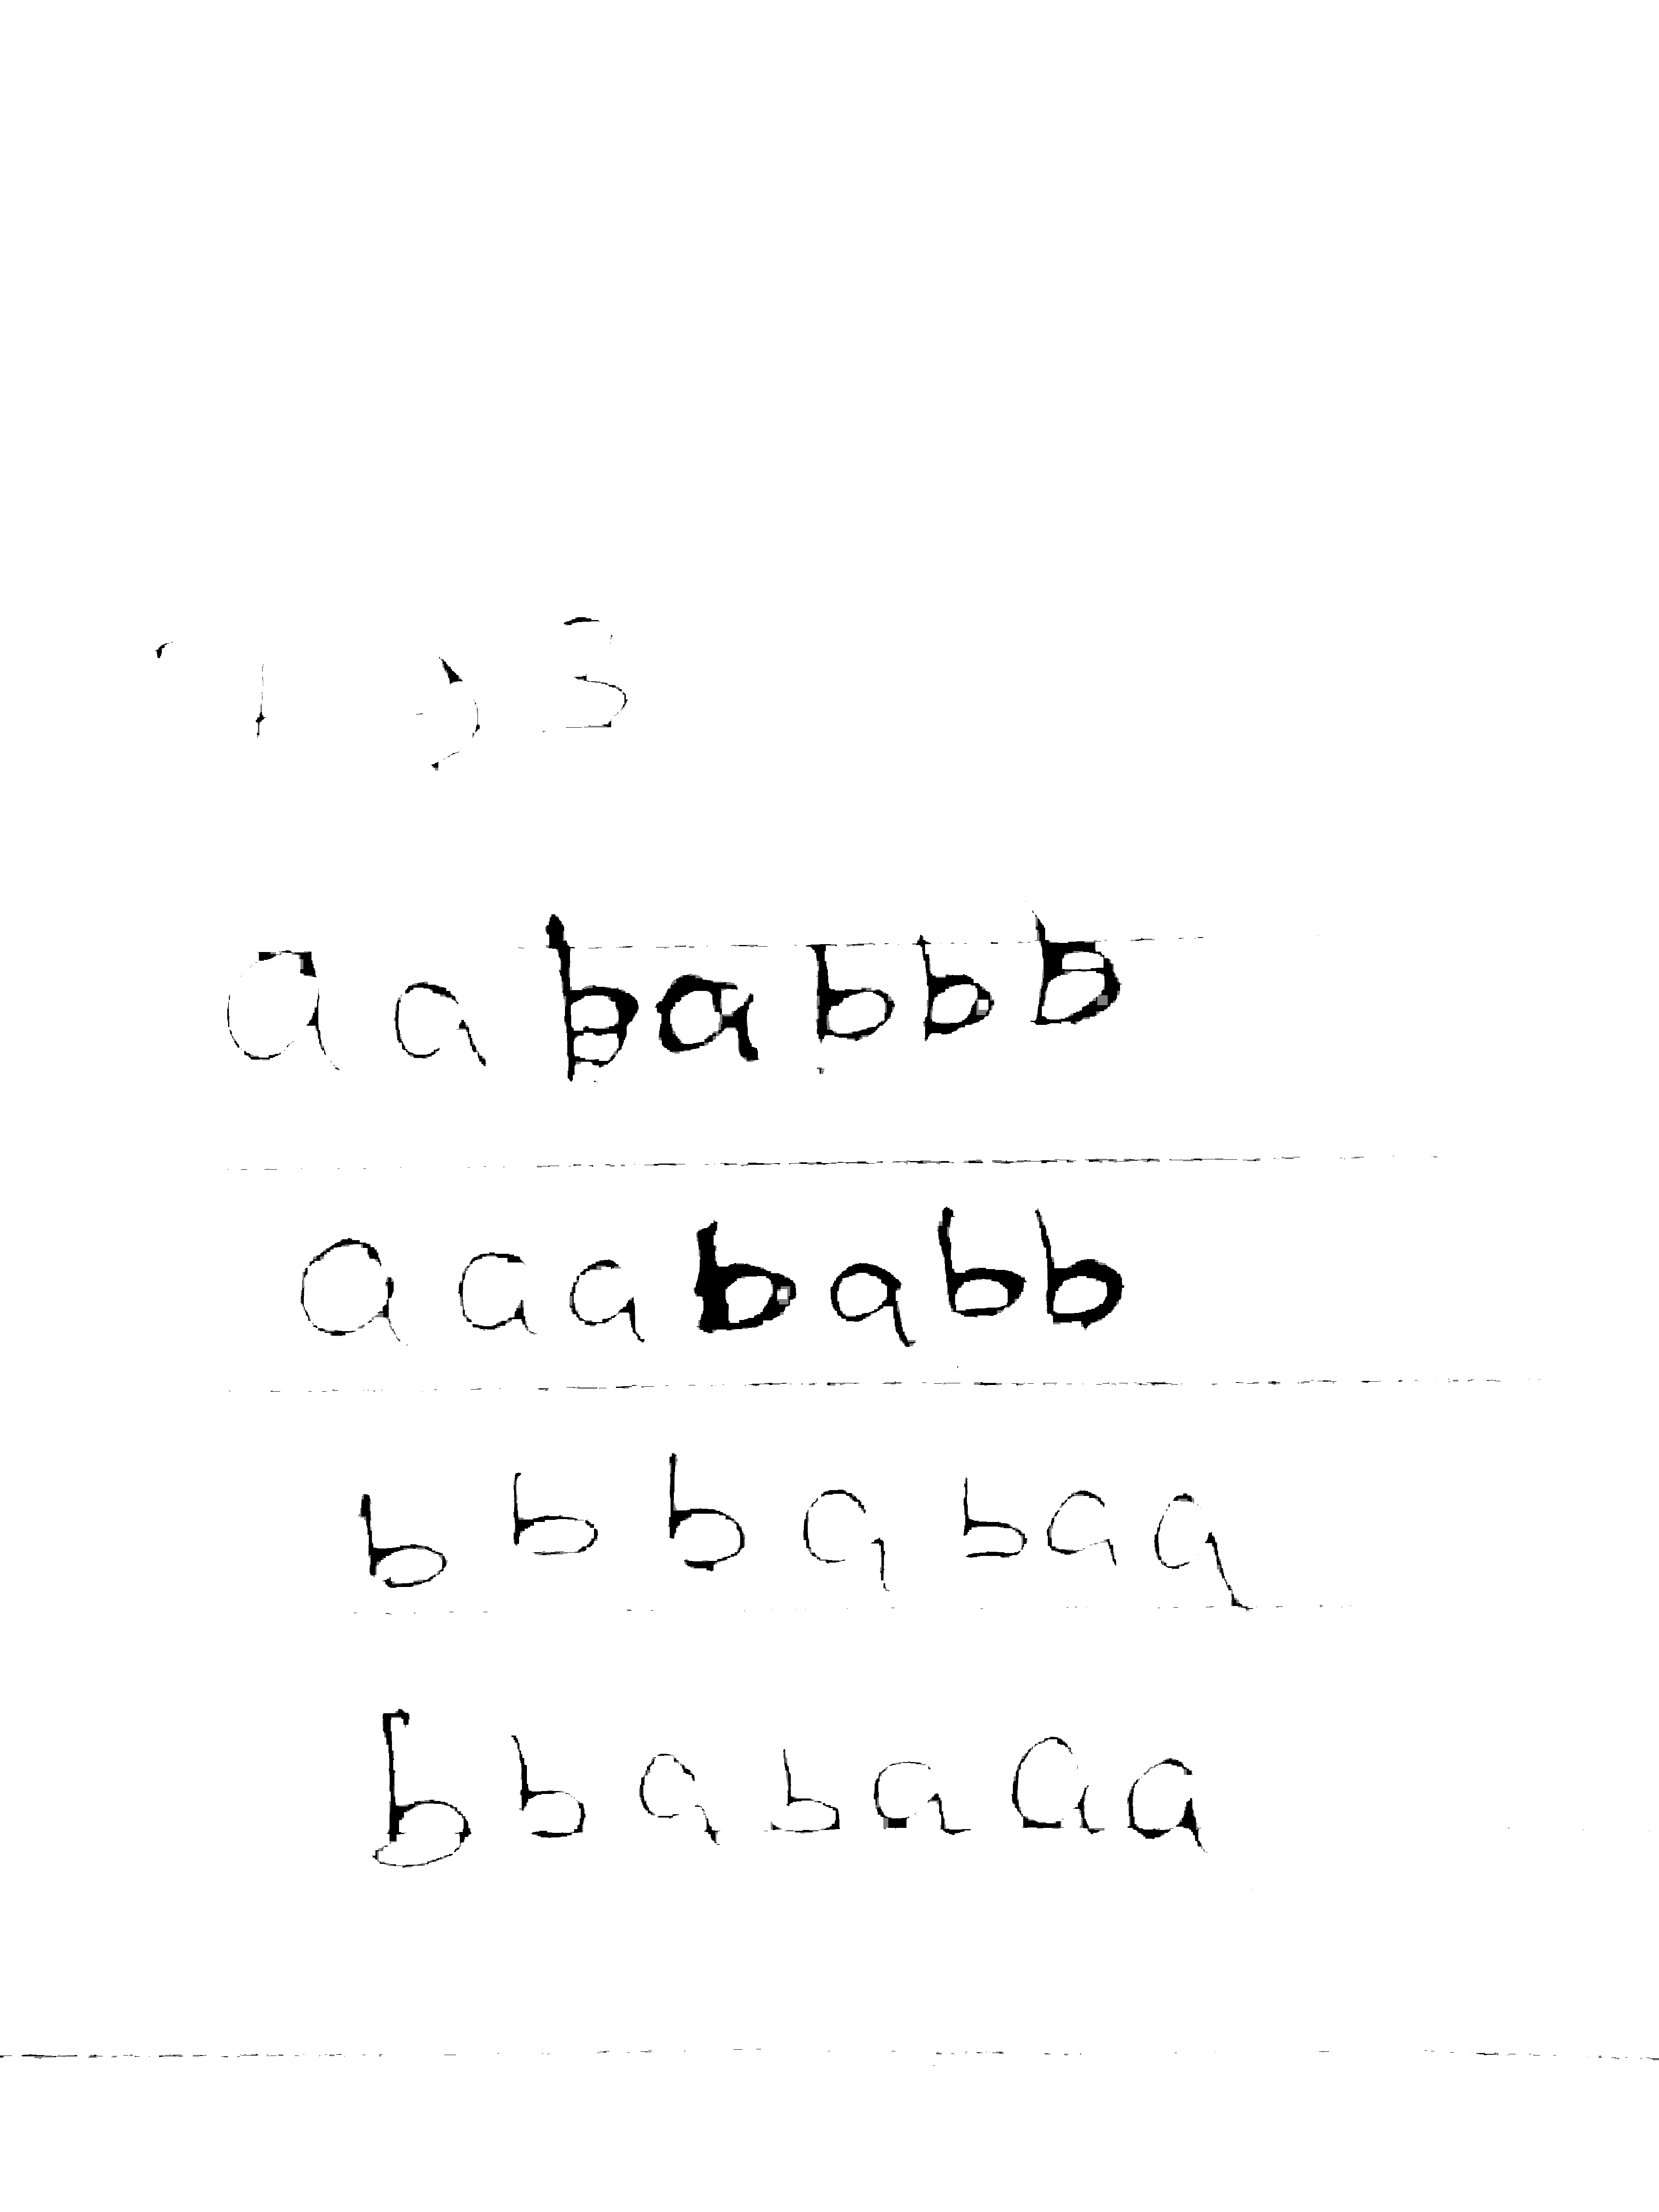 a a b a b b b
a a a b a b b
b b b a b a a
b b a b a a a